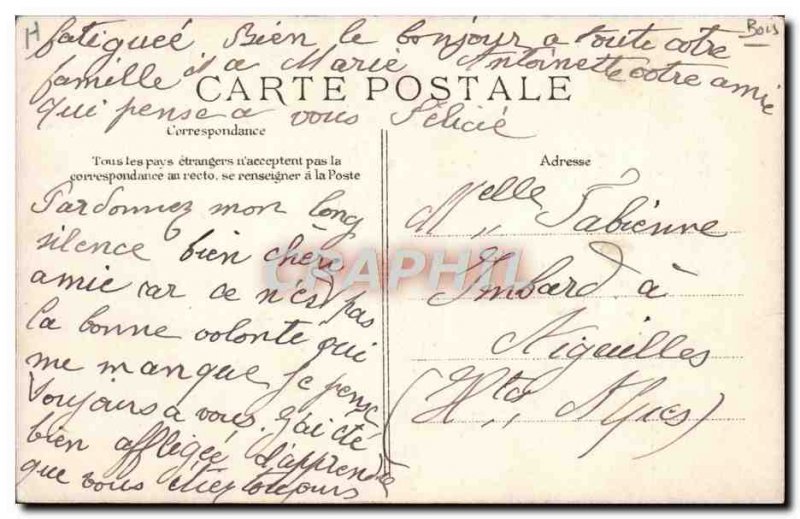 H
Bois
fatigueé Bien le bonjour a toute votre
famille et a Marie Antoinette votre amie
CARTE POSTALE
qui pense a vous Félicie
Correspondance
Tous les pays étrangers n'acceptent pas la
correspondance au recto, se renseigner à la Poste
Pardonnez mon long
silence bien chère
amie car ce n'est pas
la bonne volonté qui
me manque je pense
toujours a vous. j'ai été
bien affligée d'apprendre
que vous étiez toujours
Adresse
Melle Fabienne
Imbard à
Aiguilles
(Htes Alpes)
CPAPHIL